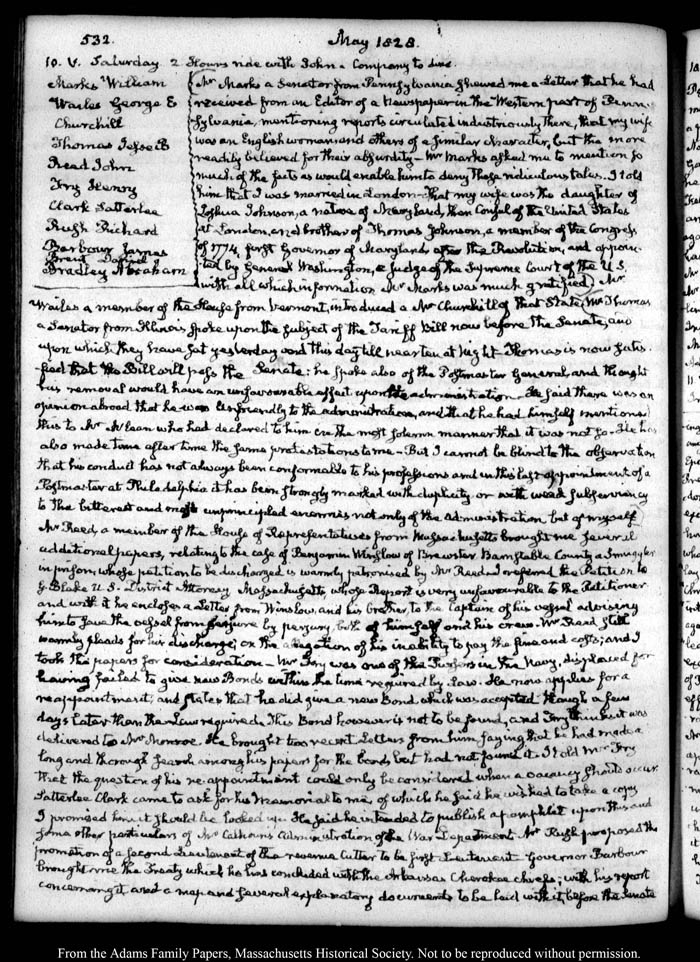 532.
May 1828.
10. V. Saturday. 2 Hours ride with John. Company to dine.
Marks William
Wailes George E
Churchill
Thomas Jesse B
Read John
Fry Henry
Clark Satterlee
Rush Richard
Barbour James
Brent Daniel
Bradley Abraham
Mr Marks a Senator from Pennsylvania shewed me a Letter that he had
received from an Editor of a Newspaper in the Western part of Penn-
sylvania, mentioning reports circulated industriously there, that my wife
was an English woman and others of a similar character, but the more
readily believed for their absurdity— Mr Marks asked me to mention so
much of the facts as would enable him to deny those ridiculous tales. I told
him that I was married in London— That my wife was the daughter of
Joshua Johnson, a native of Maryland, then Consul of the United States
at London, and brother of Thomas Johnson, a member of the Congress
of 1774, first Governor of Maryland after the Revolution, and appoin-
ted by General Washington, a Judge of the Supreme Court of the U.S.
with all which information Mr Marks was much gratified. Mr
Wailes a member of the House from Vermont, introduced a Mr Churchill of that State, Mr Thomas
a Senator from Illinois spoke upon the subject of the Tariff Bill now before the Senate, and
upon which they have sat yesterday and this day till near ten at Night— Thomas is now satis-
fied that the Bill will pass the Senate: he spoke also of the Postmaster General and thought
his removal would have an unfavourable effect upon the administration. He said there was an
opinion abroad that he was unfriendly to the administration, and that he had himself mentioned
this to Mr McLean who had declared to him in the most solemn manner that it was not so. He has
also made time after time the same protestations to me— But I cannot be blind to the observation
that his conduct has not always been conformable to his professions and in this last appointment of a
Postmaster at Philadelphia it has been strongly marked with duplicity or with weak subserviency
to the bitterest and most unprincipled enemies not only of the administration but of myself
Mr Reed, a member of the House of Representatives from Massachusetts brought me several
additional papers, relating to the case of Benjamin Winslow of Brewster Barnstable County a Smuggler
in prison, whose petition to be discharged is warmly patronised by Mr Reed. I referred the Petition to
G. Blake U.S. District Attorney Massachusetts, whose Report is very unfavourable to the Petitioner
and with it he encloses a Letter from Winslow, and his brother, to the Captain of his vessel advising
him to save the vessel from seizure by perjury, both of himself and his crew. Mr Reed still
warmly pleads for his discharge; on the allegation of his inability to pay the fine and costs; and I
took the papers for consideration— Mr Fry was one of the Pursers in the Navy, displaced for
having failed to give new Bonds within the time required by Law. He now applies for a
reappointment; and states that he did give a new Bond which was accepted though a few
days later than the Law required. This Bond however is not to be found, and Fry thinks it was
delivered to Mr Monroe. He brought two recent Letters from him saying that he had made a
long and thorough search among his papers for the bond, but had not found it. I told Mr Fry
that the question of his re-appointment could only be considered when a vacancy should occur.
Satterlee Clark came to ask for his Memorial to me, of which he said he wished to take a copy
I promised him it should be looked up. He said he intended to publish a pamphlet upon this and
some other particulars of Mr Calhoun's Administration of the War Department. Mr Rush proposed the
promotion of a second Lieutenant of the revenue Cutter to be first Lieutenant Governor Barbour
brought me the Treaty which he has concluded with the Arkansas Cherokee chiefs; with his report
concerning it and a map and several explanatory documents to be laid with it, before the Senate
From the Adams Family Papers, Massachusetts Historical Society. Not to be reproduced without permission.